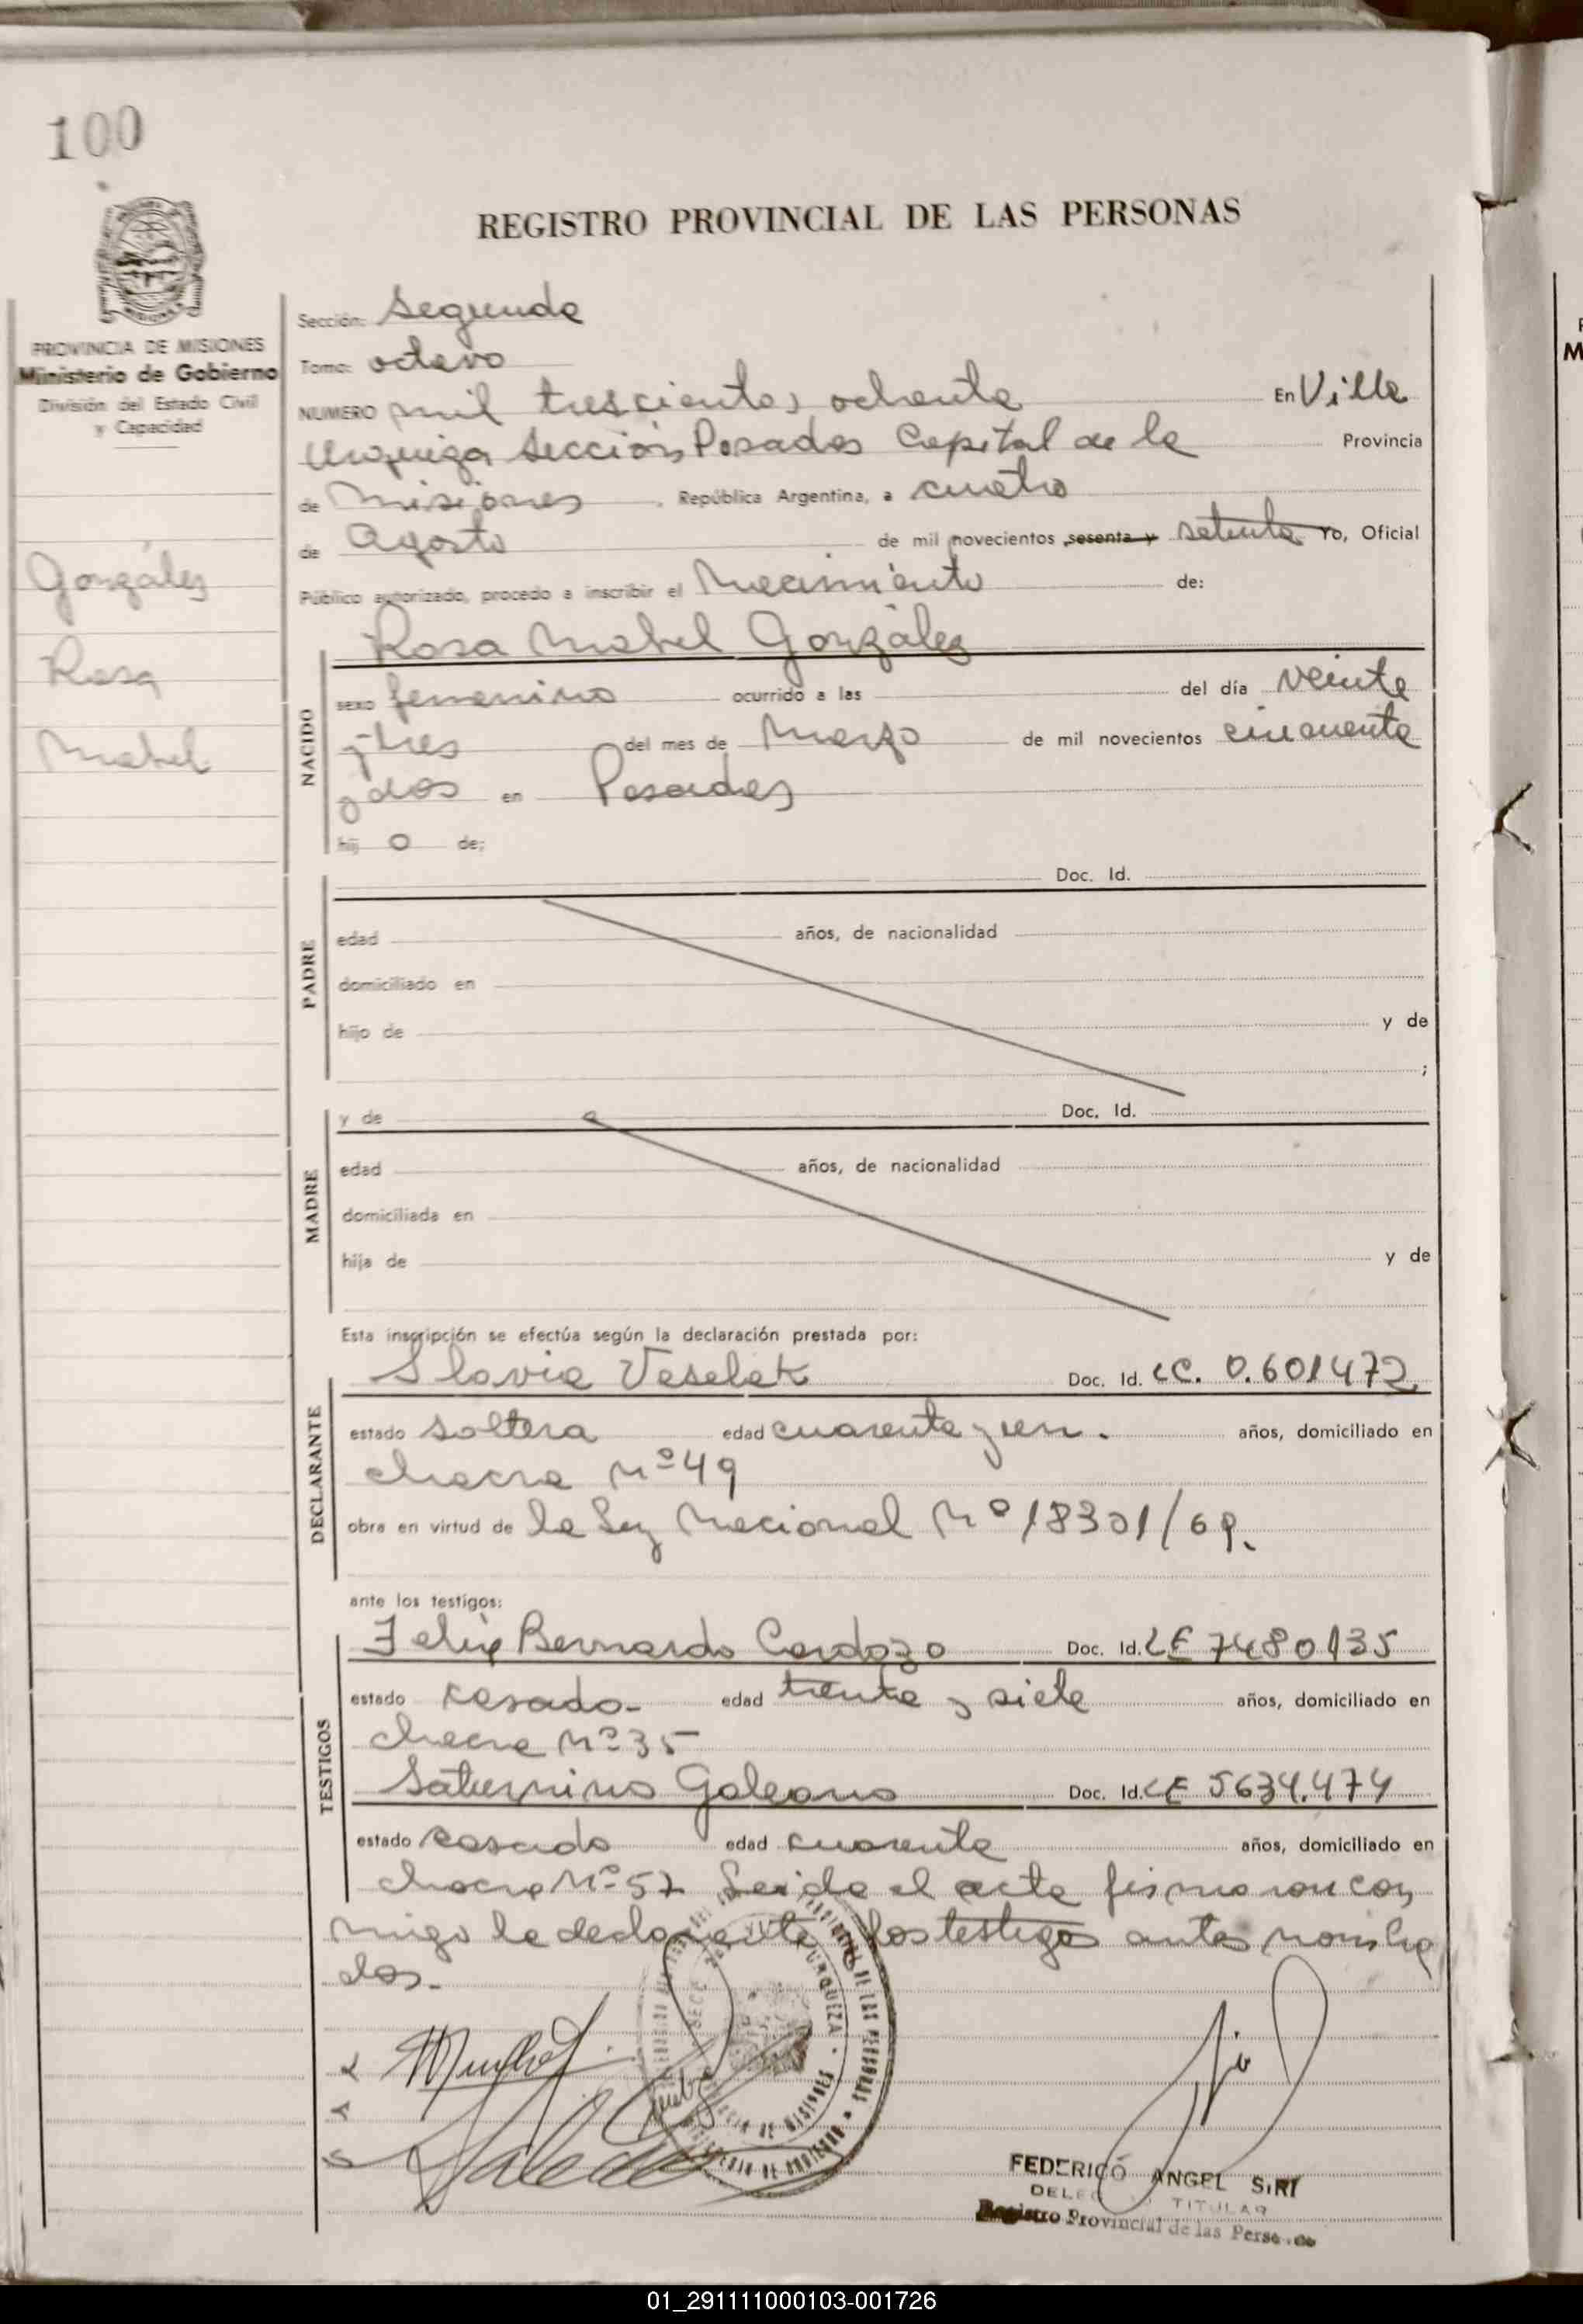 100
REGISTRO PROVINCIAL DE LAS PERSONAS
PROVINCIA DE MISIONES
Ministerio de Gobierno
División del Estado Civil
y Capacidad
González
Rosa
Mabel
Sección: Segunda
Tomo: octavo
NUMERO mil trescientos ochenta En Villa
Urquiza Sección Posadas Capital de la Provincia
de Misiones, República Argentina, a cuatro
de Agosto de mil novecientos sesenta y setenta Yo, Oficial
Público autorizado, procedo a inscribir el Nacimiento de:
Rosa Mabel González
NACIDO
sexo femenino ocurrido a las del día veinte
y tres del mes de Marzo de mil novecientos cincuenta
y dos en Posadas
hij o de;
PADRE
Doc. Id.
edad años, de nacionalidad
domiciliado en
hijo de y de
;
MADRE
y de Doc. Id.
edad años, de nacionalidad
domiciliada en
hija de y de
Esta inscripción se efectúa según la declaración prestada por:
DECLARANTE
Slavia Veselak Doc. Id. LC. 0.601472
estado soltera edad cuarenta y un. años, domiciliado en
chacra Nº 49
obra en virtud de la Ley Nacional Nº 18301/69.
ante los testigos:
TESTIGOS
Felix Bernardo Cardozo Doc. Id. LE 7480135
estado casado- edad treinta y siete años, domiciliado en
chacra Nº 35
Saturnino Galeano Doc. Id. LE 5634.474
estado casado edad cuarenta años, domiciliado en
chacra Nº 57 Leida el acta firmaron con
migo la declarante y los testigos antes nombra
dos.-
SECC. URQUIZA
FEDERICO ANGEL SIRI
TITULAR
Registro Provincial de las Personas
01_291111000103-001726